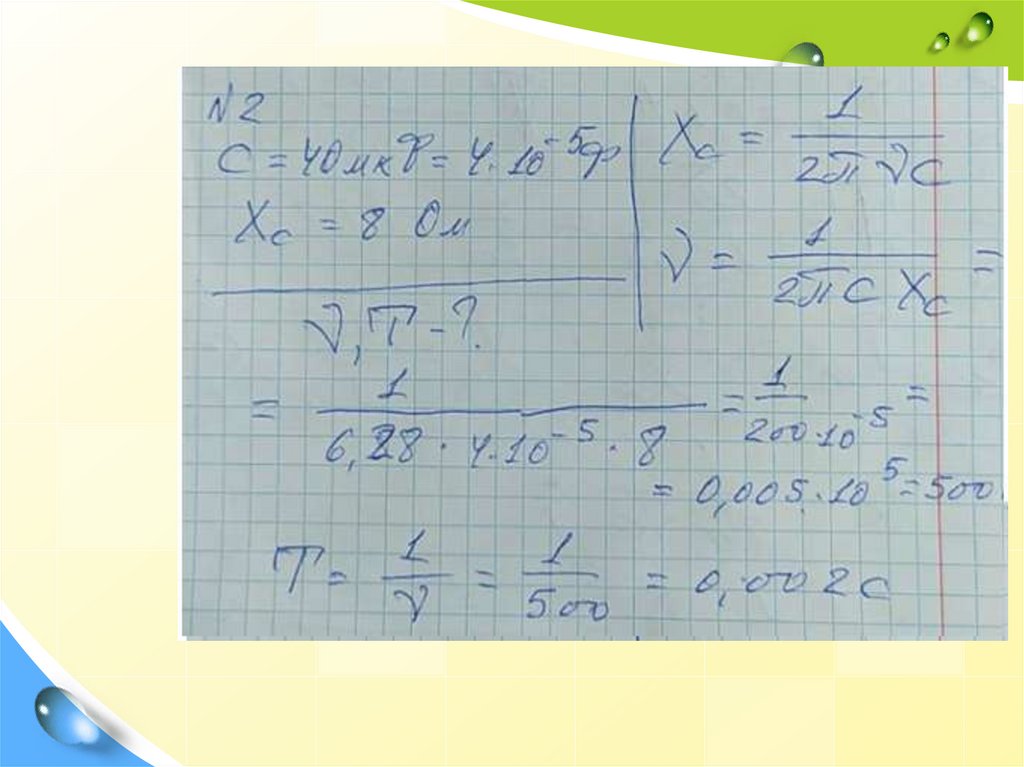 N2
C = 40мкФ = 4·10⁻⁵Ф
Xc = 8 Ом
ν, T - ?
Xc = 1 / 2πνC
ν = 1 / 2πC Xc =
= 1 / 6,28 · 4·10⁻⁵ · 8 = 1 / 200·10⁻⁵ =
= 0,005·10⁵ = 500
T = 1/ν = 1/500 = 0,002с